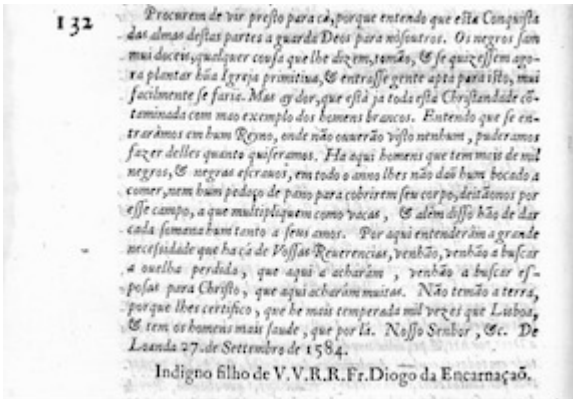 132
Procurem de vir presto para cà, porque entendo que esta Conquista
das almas destas partes a guarda Deos para nósoutros. Os negros sam
mui doceis, qualquer cousa que lhe dizem, tomão, & se quizessem ago-
ra plantar hũa Igreja primitiva, & entrasse gente apta para isto, mui
facilmente se faria. Mas ay dor, que està ja toda esta Christandade cõ-
taminada com mao exemplo dos homens brancos. Entendo que se en-
traràmos em hum Reyno, onde não ouuerão visto nenhum, puderamos
fazer delles quanto quiseramos. Ha aqui homens que tem mais de mil
negros, & negras escrauos, em todo o anno lhes não daõ hum bocado a
comer, nem hum pedaço de pano para cobrirem seu corpo, deitãonos por
esse campo, a que multipliquem como vacas, & alèm disso hão de dar
cada somana hum tanto a seus amos. Por aqui entenderàm a grande
necessidade que ha cà de Vossas Reuerencias, venhão, venhão a buscar
a ouelha perdida, que aqui a acharàm, venhão a buscar es-
posas para Christo, que aqui acharàm muitas. Não temão a terra,
porque lhes certifico, que he mais temperada mil vezes que Lisboa,
& tem os homens mais saude, que por là. Nosso Senhor, &c. De
Loanda 27. de Settembro de 1584.
Indigno filho de V.V.R.R. Fr. Diogo da Encarnaçaõ.